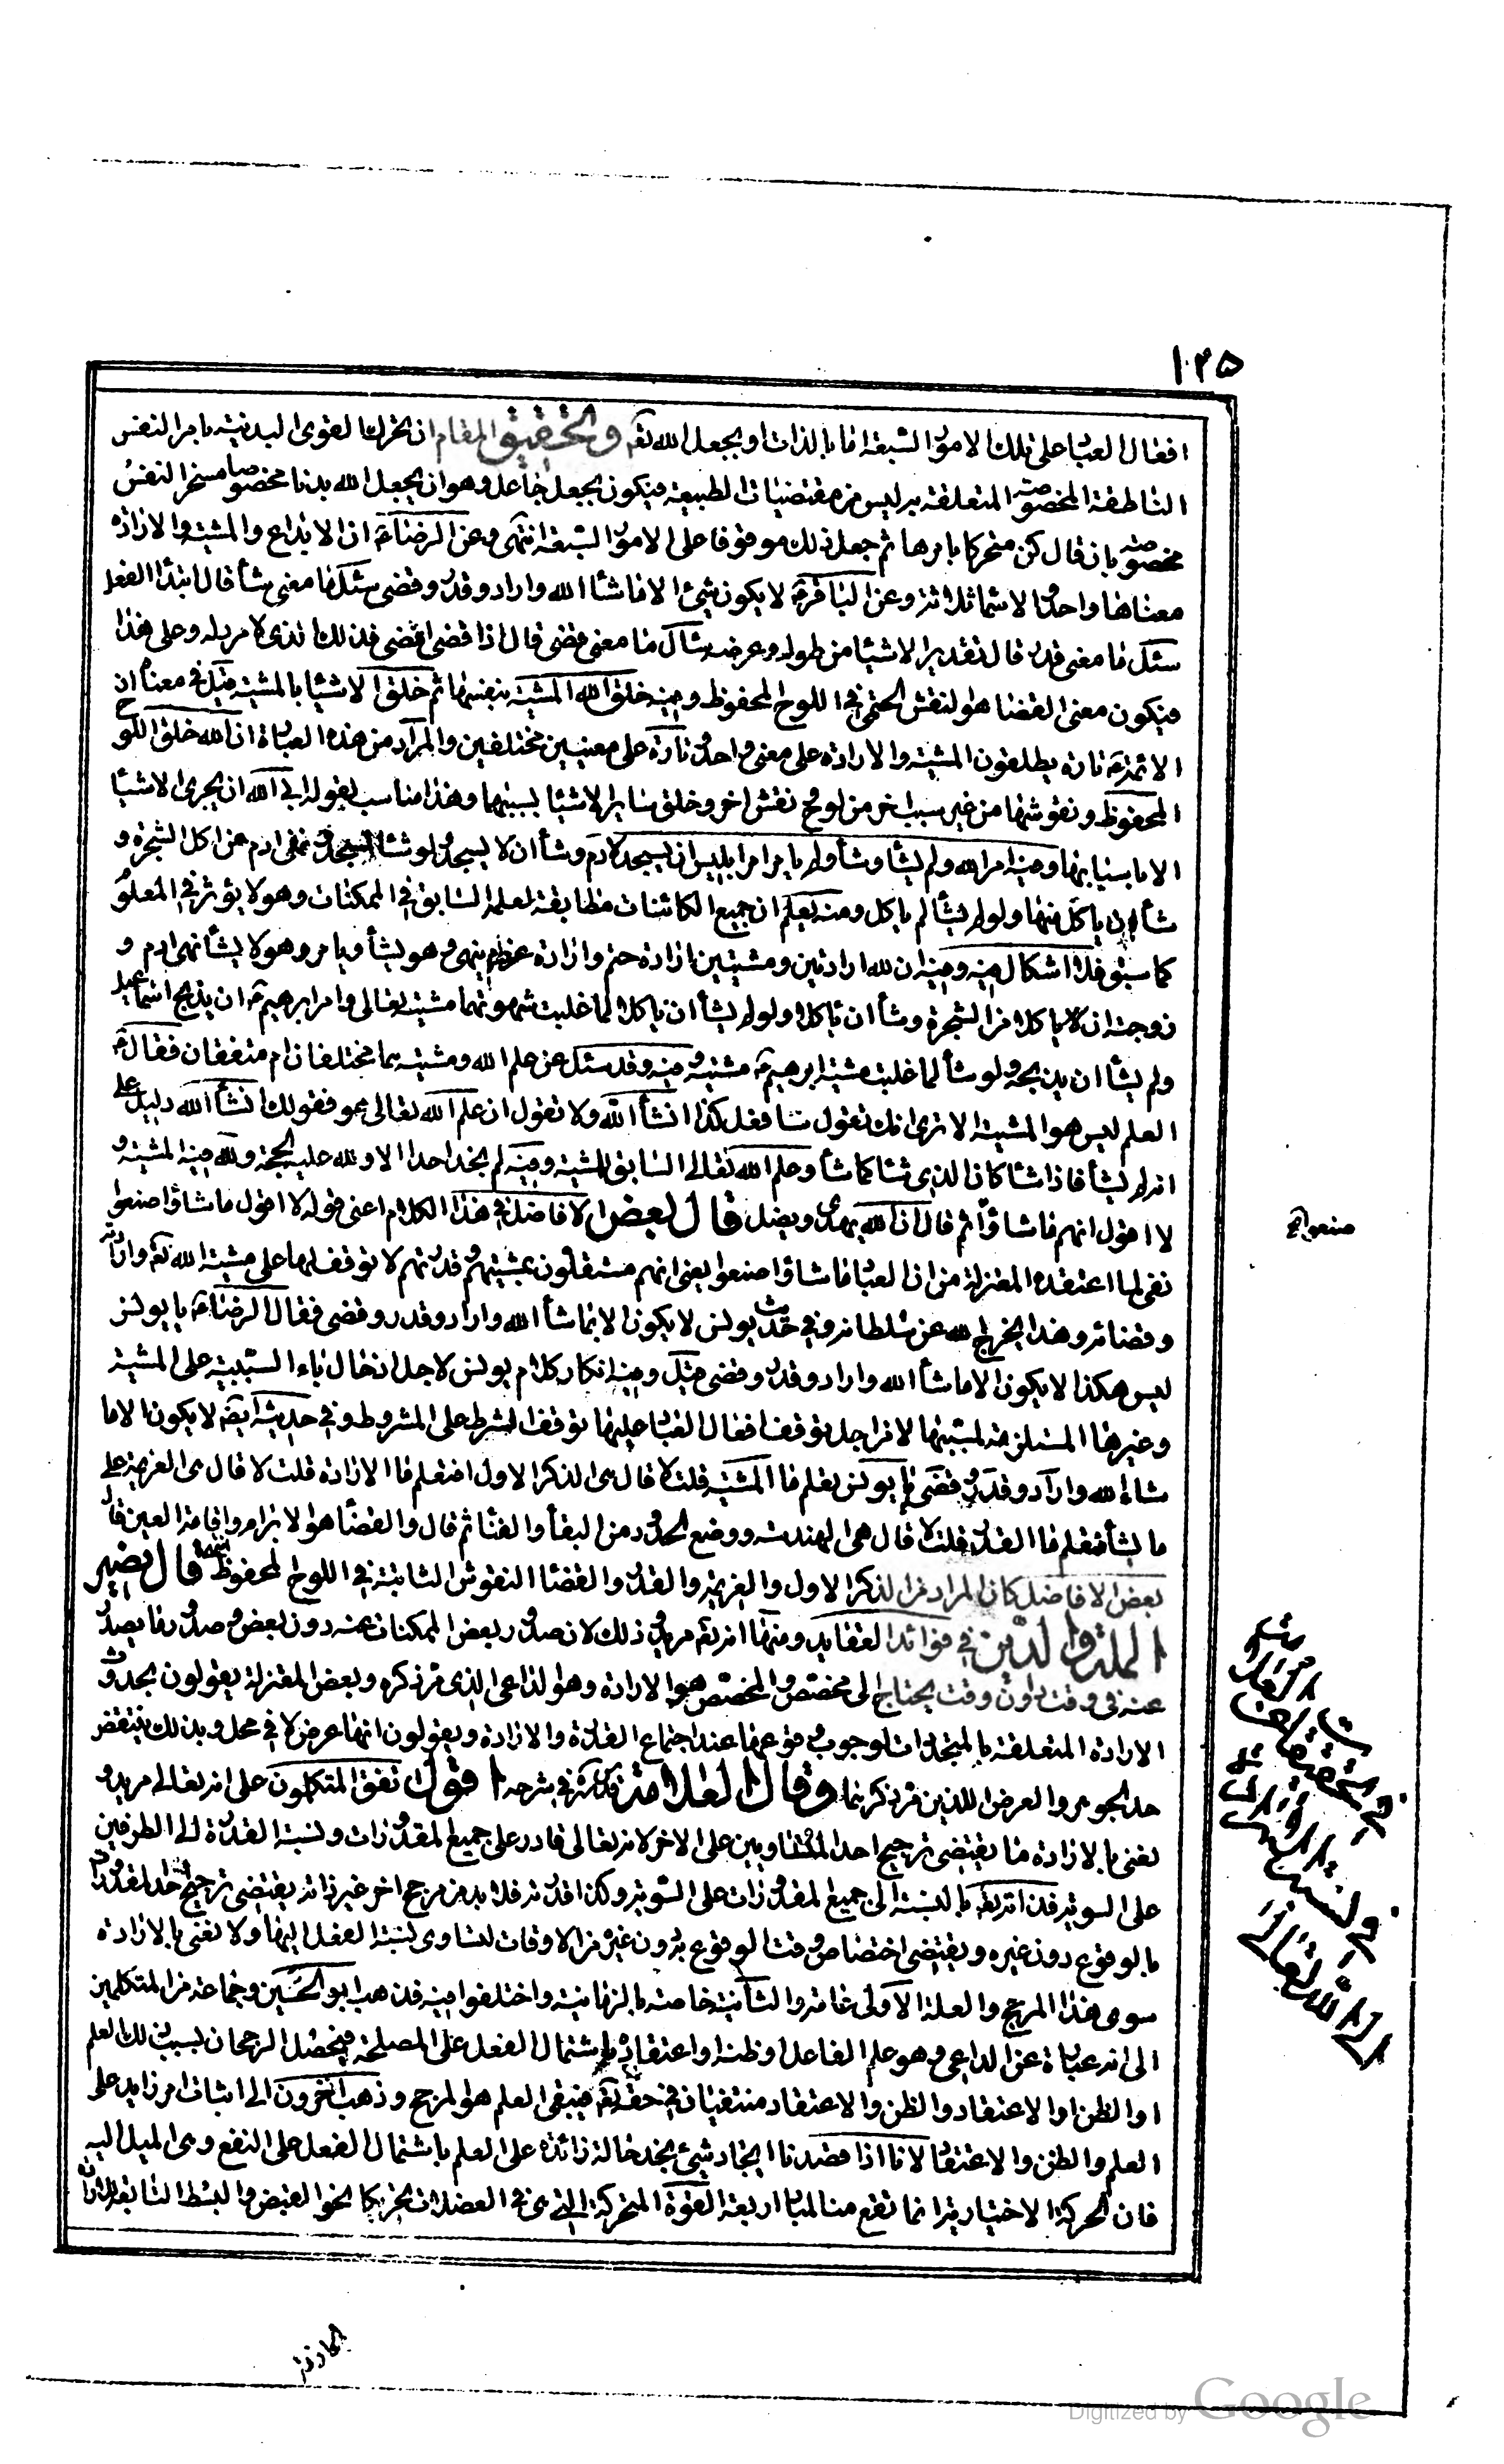 ١٢٥
افعال العباد على تلك الامور السبعة اما بالذات او بجعل الله تعم والتحقيق المقام ان تحرك القوى البدنية بامر النفس
الناطقة المخصوصة المتعلقة به ليس من مقتضيات الطبيعة فيكون بجعل جاعل وهو ان يجعل الله بدنا مخصوصا مسخر النفس
مخصوصة بان قال كن متحركا بامرها ثم جعل ذلك موقوفا على الامور السبعة انتهى وعن الرضاء ان الابداع والمشية والارادة
معناها واحد والاسماء ثلاثة وعن الباقر لا يكون شئ الا ما شاء الله واراد وقدر وقضى سئل ما معنى شأ قال ابتدأ الفعل
سئل ما معنى قدر قال تقدير الاشيا من طوله وعرضه سئل ما معنى قضى قال اذا قضى امضى فذلك الذى لا مرد له وعلى هذا
فيكون معنى القضا هو النقش الحتمى فى اللوح المحفوظ وفيه خلق الله المشية بنفسها ثم خلق الاشيا بالمشية قيل فى معناه ان
الائمة تارة يطلقون المشية والارادة على معنى واحد وتارة على معنيين مختلفين والمراد من هذه العبارة ان الله خلق اللوح
المحفوظ ونقوشها من غير سبب اخر من لوح ونقش اخر وخلق ساير الاشيا بسببهما وهذا مناسب لقوله ابى الله ان يجرى الاشيا
الا باسبابها وفيه امر الله ولم يشأ وشأ ولم يامر امر ابليس ان يسجد لادم وشأ ان لا يسجد ولو شأ لسجد ونهى ادم عن اكل الشجرة و
شأ ان ياكل منها ولو لم يشأ لم ياكل ومنه يعلم ان جميع الكائنات مطابقة لعلمه السابق فى الممكنات وهو لا يؤثر فى المعلوم
كما سبق فلا اشكال فيه وفيه ان لله ارادتين ومشيتين ارادة حتم وارادة عزم ينهى وهو يشأ ويامر وهو لا يشأ نهى ادم و
زوجته ان لا ياكلا من الشجرة وشأ ان ياكلا ولو لم يشأ ان ياكلا لما غلبت شهوتهما مشية تعالى وامر ابرهيم ان يذبح اسماعيل
ولم يشأ ان يذبحه ولو شأ لما غلبت مشية ابرهيم مشيته وفيه وقد سئل عن علم الله ومشيته هما مختلفان ام متفقان فقال
العلم ليس هو المشية الا ترى انك تقول سافعل كذا انشأ الله ولا تقول ان علم الله تعالى محو فقولك انشأ الله دليل على
انه لم يشأ فاذا شأ كان الذى شأ كما شأ وعلم الله تعالى السابق للمشية وفيه لم نجد احدا الا ولله عليه الحجة ولله فيه المشية و
لا اقول انهم ما شاؤا ثم قال ان الله يهدى ويضل قال بعض الافاضل فى هذا الكلام اعنى قوله لا اقول ما شاؤا صنعوا
نفى لما اعتقده المعتزلة من ان العباد ما شاؤا صنعوا يعنى انهم مستقلون بمشيتهم وقدرتهم لا توقف لها على مشية الله تعم وارادته
وقضائه وهذا يخرج لله عن سلطانه وفى حديث يونس لا يكون الا بما شأ الله واراد وقدر وقضى فقال الرضاء يا يونس
ليس هكذا لا يكون الا ما شأ الله واراد وقدر وقضى قيل وفيه انكار كلام يونس لاجل ادخال باء السببية على المشية
وغيرها المستلزمة لسببيتها لا من اجل توقف افعال العباد عليها توقف الشرط على المشروط وفى حديثه ايضم لا يكون الا ما
شاء الله واراد وقدر وقضى يا يونس تعلم ما المشية قلت لا قال هى الذكر الاول افتعلم ما الارادة قلت لا قال هى العزيمة على
ما يشأ فتعلم ما القدر قلت لا قال هى الهندسة ووضع الحدود من البقاء والفنا ثم قال والقضا هو الابرام واقامة العين قال
بعض الافاضل كان المراد من الذكر الاول والعزيمة والقدر والقضا النقوش الثابتة فى اللوح المحفوظ انتهى قال نصير
الملة والدين فى فوائد العقايد ومنها انه تعم مريد وذلك لان صدور بعض الممكنات عنه دون بعض وصدور ما يصدر
عنه فى وقت دون وقت يحتاج الى مخصص والمخصص هو الارادة وهو الداعى الذى مر ذكره وبعض المعتزلة يقولون بحدوث
الارادة المتعلقة بالمتجددات لوجوب وقوعها عند اجتماع القدرة والارادة ويقولون انها عرض لا فى محل وبذلك ينتقض
حد الجوهر والعرض اللذين مر ذكرهما وقال العلامة فى شرحه اقول تفق المتكلمون على انه تعالى مريد و
نعنى بالارادة ما يقتضى ترجيح احد المتساويين على الاخر لانه تعالى قادر على جميع المقدورات ونسبة القدرة الى الطرفين
على السوية فذاته تعم بالنسبة الى جميع المقدورات على السوية وكذا قدرته فلا بد من مرجح اخر غير ذاته يقتضى ترجيح احد المقدورات
بالوقوع دون غيره ويقتضى اختصاص وقت الوقوع به دون غيره من الاوقات لتساوى نسبة الفعل اليها ولا نعنى بالارادة
سوى هذا المرجح والعلة الاولى عامة والثانية خاصة بالزمانية واختلفوا فيه فذهب ابو الحسين وجماعة من المتكلمين
الى انه عبارة عن الداعى وهو علم الفاعل او ظنه او اعتقاده باشتمال الفعل على المصلحة فيحصل الرجحان بسبب ذلك العلم
او الظن او الاعتقاد والظن والاعتقاد منتفيان فى حقه تعم فيبقى العلم هو المرجح وذهب اخرون الى اثبات امر زايد على
العلم والظن والاعتقاد لانا اذا قصدنا ايجاد شئ نجد حالة زائدة على العلم باشتمال الفعل على النفع وهى الميل اليه
فان الحركة الاختيارية انما تقع منا لمباد اربعة القوة المحركة التى هى فى العضلات تحركا نحو القبض والبسط التابعة للارادة
Digitized by Google